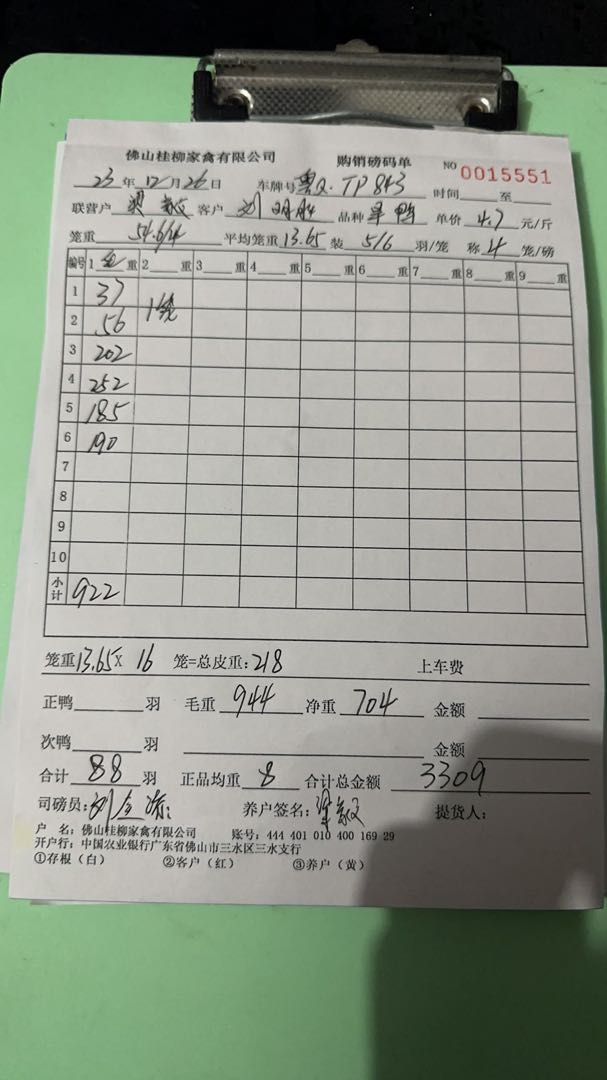 佛山桂柳家禽有限公司 购销磅码单 NO 0015551
23年12月26日 车牌号 粤Q.TP843 时间 至
联营户 梁 客户 刘明 品种 旱鸭 单价 4.7 元/斤
笼重 54.6/4 平均笼重 13.65 装 5/6 羽/笼 称 4 笼/磅
编号 1 重 2 重 3 重 4 重 5 重 6 重 7 重 8 重 9 重
1 37
2 56
3 202
4 252
5 185
6 190
7
8
9
10
小计 922
笼重 13.65 × 16 笼=总皮重: 218 上车费
正鸭 羽 毛重 944 净重 704 金额
次鸭 羽 金额
合计 88 羽 正品均重 8 合计总金额 3309
司磅员: 刘 养户签名: 梁 提货人:
户 名: 佛山桂柳家禽有限公司 账号: 444 401 010 400 169 29
开户行: 中国农业银行广东省佛山市三水区三水支行
①存根(白) ②客户(红) ③养户(黄)